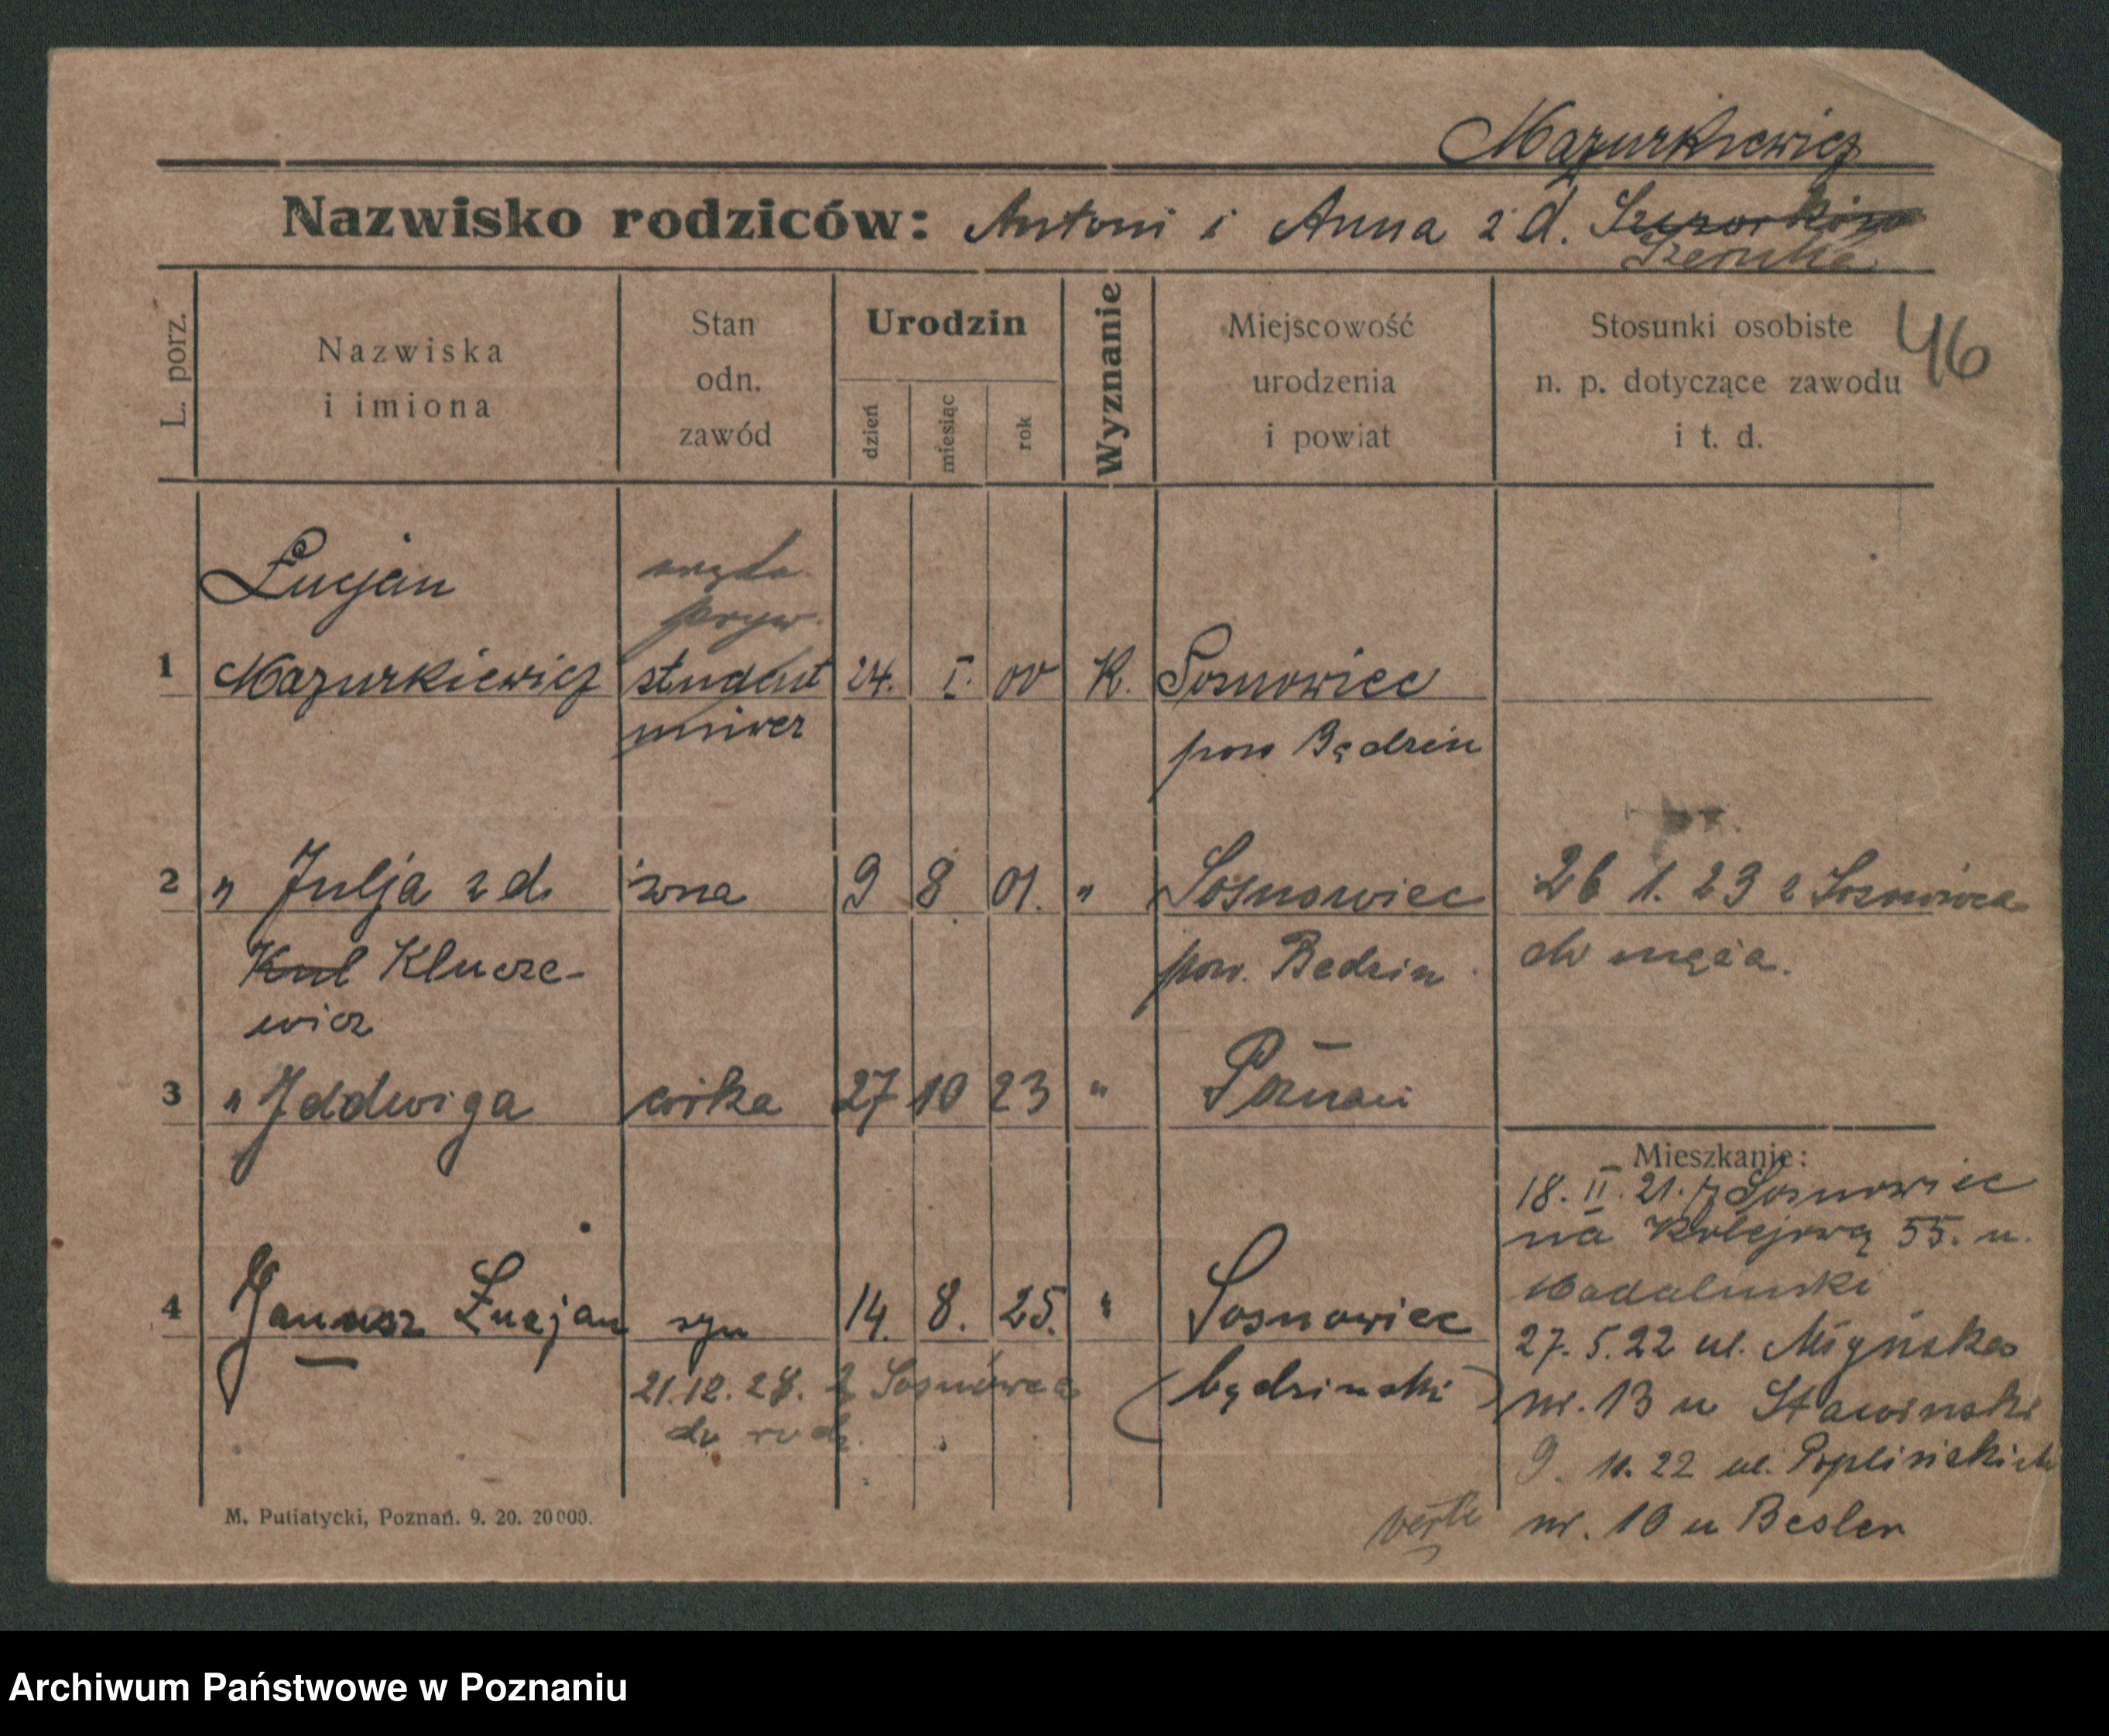 Mazurkiewicz
Nazwisko rodziców: Antoni i Anna z d.
46
L. porz.
Nazwiska
i imiona
Stan
odn.
zawód
Urodzin
dzień
miesiąc
rok
Wyznanie
Miejscowość
urodzenia
i powiat
Stosunki osobiste
n. p. dotyczące zawodu
i t. d.
Łucjan
pryw.
1 Mazurkiewicz student 24. I. 00 K. Sosnowiec
uniwer
pow Będzin
2 " Julja z d. żona 9 8 01. " Sosnowiec 26 1. 23 z Sosnowca
Kul Klucze-
pow. Bedzin
do męża.
wicz
3 " Jadwiga córka 27 10 23 " Poznań
Mieszkanie:
18. II. 21. z Sosnowiec
na Kolejową 55. u.
Madalinski
4 Janusz Łucjan syn 14. 8. 25. " Sosnowiec
27. 5. 22 ul.
21.12.28. z Sosnowca
do rodz.
będzinski
nr. 13 u Stawinski
9. 11. 22 ul. Poplińskich
nr. 10 u Besler
verte
M. Putiatycki, Poznań. 9. 20. 20000.
Archiwum Państwowe w Poznaniu